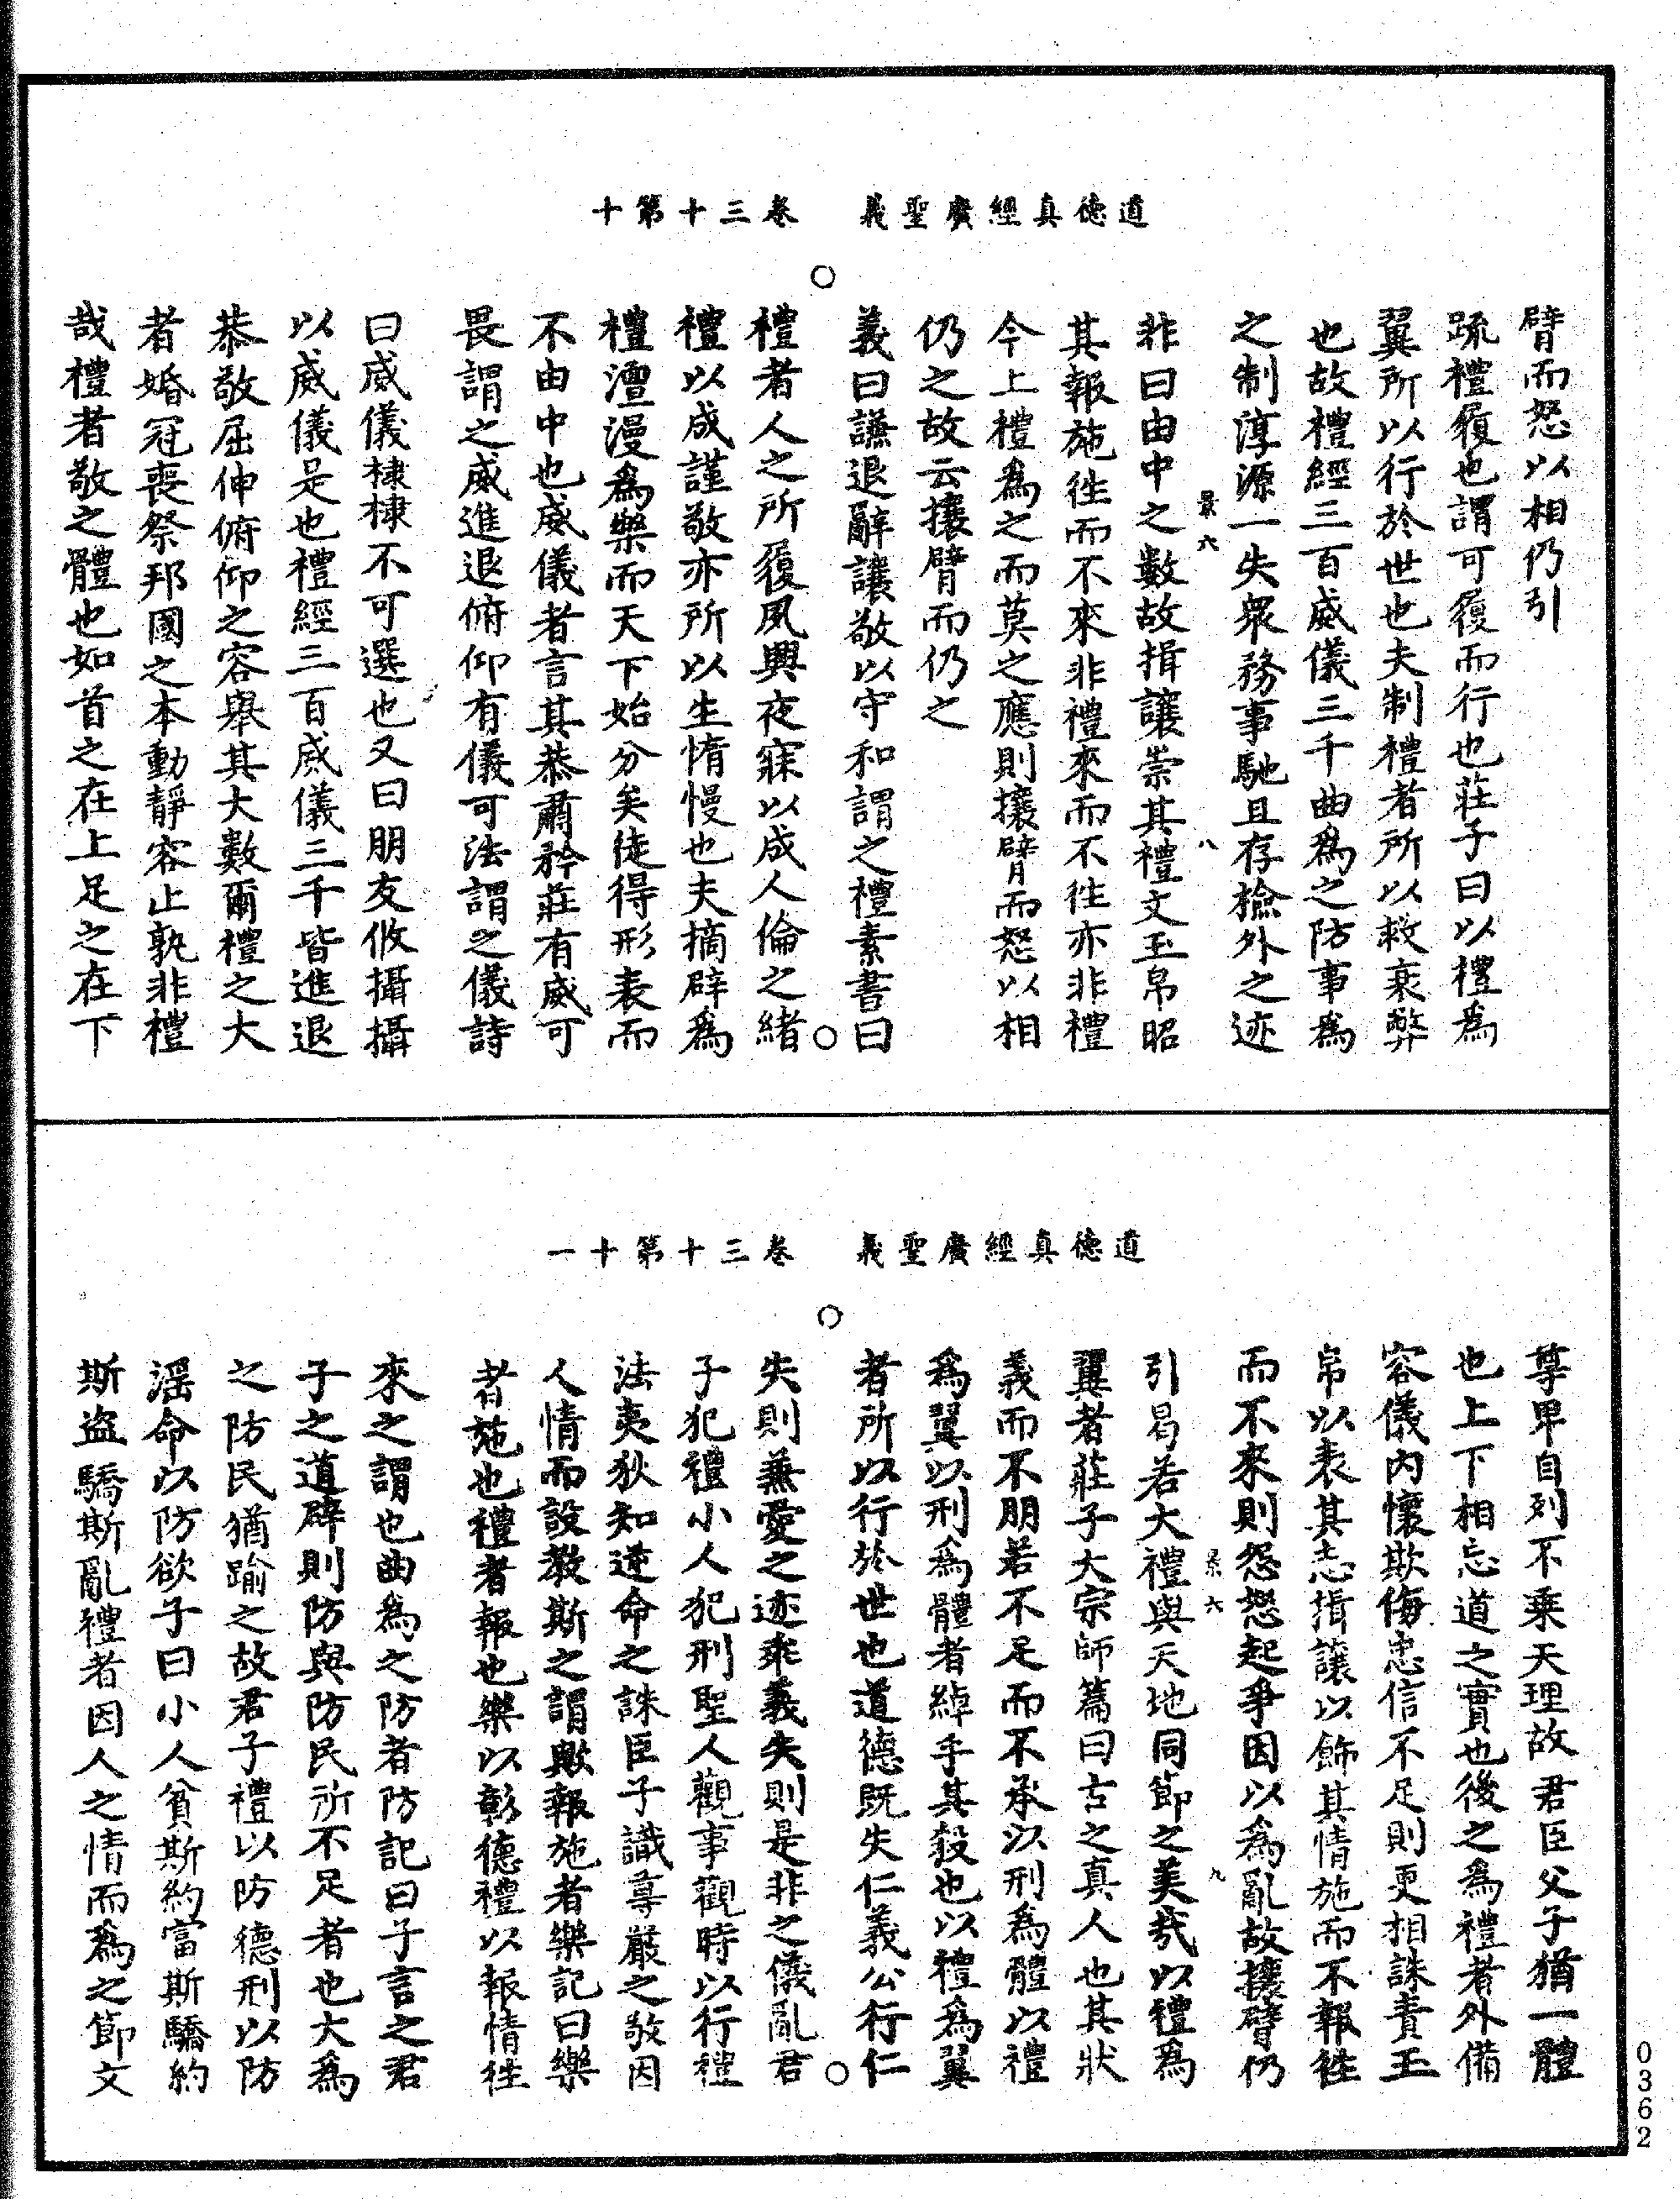 道德真經廣聖義　卷三十第十
臂而怒以相仍引
疏禮履也謂可履而行也莊子曰以禮為
翼所以行於世也夫制禮者所以救衰弊
也故禮經三百威儀三千曲為之防事為
之制淳源一失衆務事馳且存檢外之迹
景六　八
非曰由中之數故揖讓崇其禮文玉帛昭
其報施徃而不來非禮來而不徃亦非禮
今上禮為之而莫之應則攘臂而怒以相
仍之故云攘臂而仍之
義曰謙退辭讓敬以守和謂之禮素書曰
禮者人之所履夙興夜寐以成人倫之緒
禮以成謹敬亦所以生惰慢也夫摘辟為
禮澶漫為樂而天下始分矣徒得形表而
不由中也威儀者言其恭肅矜莊有威可
畏謂之威進退俯仰有儀可法謂之儀詩
曰威儀棣棣不可選也又曰朋友攸攝攝
以威儀是也禮經三百威儀三千皆進退
恭敬屈伸俯仰之容舉其大數爾禮之大
者婚冠喪祭邦國之本動靜容止孰非禮
哉禮者敬之體也如首之在上足之在下
道德真經廣聖義　卷三十第十一
尊卑自列不乘天理故君臣父子猶一體
也上下相忘道之實也後之為禮者外備
容儀內懷欺侮忠信不足則更相誅責玉
帛以表其志揖讓以飾其情施而不報徃
而不來則怨怒起爭因以為亂故攘臂仍
景六　九
引曷若大禮與天地同節之美哉以禮為
翼者莊子大宗師篇曰古之真人也其狀
義而不朋若不足而不承以刑為體以禮
為翼以刑為體者綽乎其殺也以禮為翼
者所以行於世也道德既失仁義公行仁
失則兼愛之迹乖義失則是非之儀亂君
子犯禮小人犯刑聖人觀事觀時以行禮
法夷狄知逆命之誅臣子識尊嚴之敬因
人情而設教斯之謂歟報施者樂記曰樂
者施也禮者報也樂以彰德禮以報情徃
來之謂也曲為之防者防記曰子言之君
子之道辟則防與防民所不足者也大為
之防民猶踰之故君子禮以防德刑以防
淫命以防欲子曰小人貧斯約富斯驕約
斯盜驕斯亂禮者因人之情而為之節文
0362